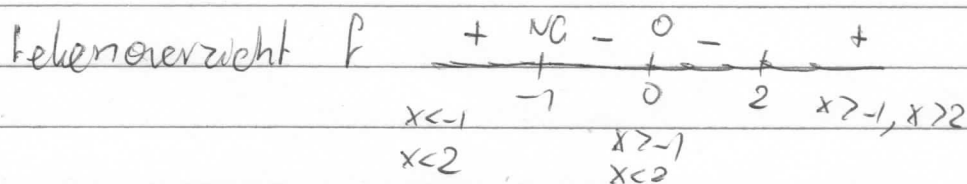 tekenoverzicht f + NG - 0 - +
-1 0 2 x>-1, x>2
x<-1 x>-1
x<2 x<2